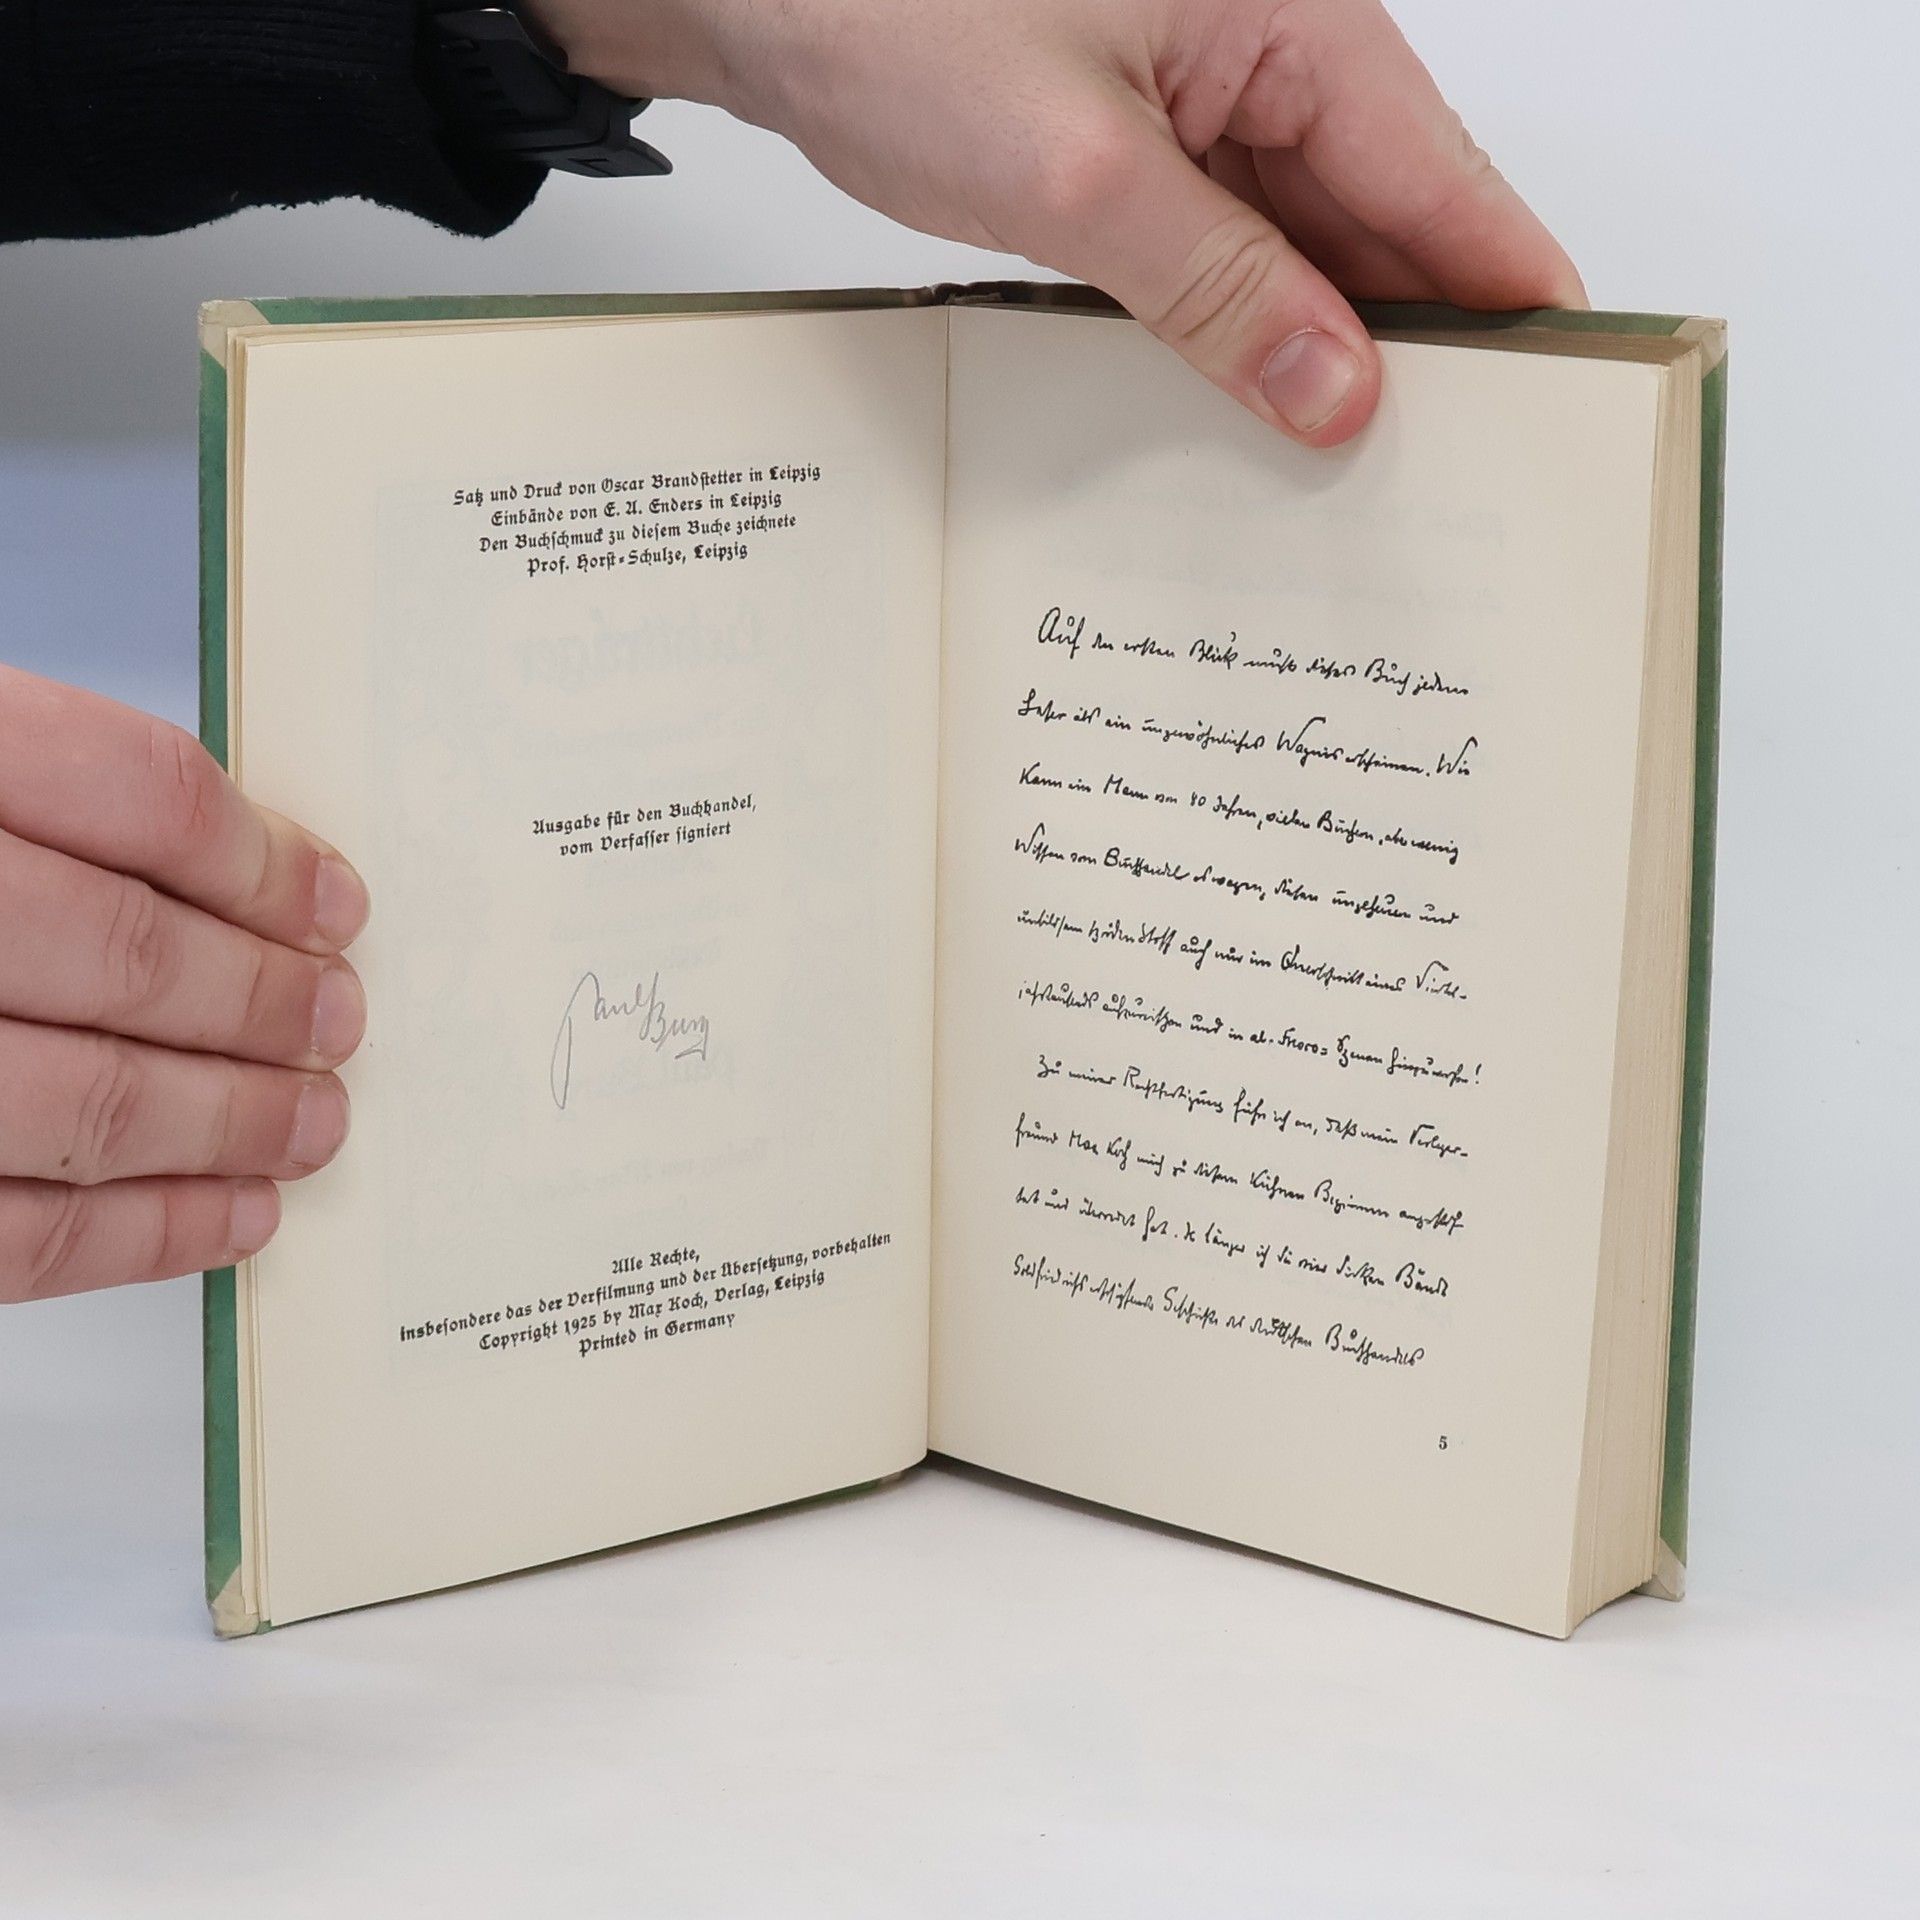 Satz und Druck von Oscar Brandstetter in Leipzig
Einbände von E. A. Enders in Leipzig
Den Buchschmuck zu diesem Buche zeichnete
Prof. Horst-Schulze, Leipzig
Ausgabe für den Buchhandel,
vom Verfasser signiert
Paul Burg
Alle Rechte,
insbesondere das der Verfilmung und der Übersetzung, vorbehalten
Copyright 1925 by Max Koch, Verlag, Leipzig
Printed in Germany
Auf den ersten Blick muß dieses Buch jedem
Leser als ein ungewöhnliches Wagnis erscheinen. Wie
kann ein Mann von 40 Jahren, vielen Büchern, aber wenig
Wissen vom Buchhandel es wagen, diesen ungeheuren und
unbildsam spröden Stoff auch nur im Querschnitt eines Viertel-
jahrtausends aufzureißen und in al-Fresco-Szenen hinzuwerfen!
Zu meiner Rechtfertigung führe ich an, daß mein Verleger-
freund Max Koch mich zu diesem kühnen Beginnen angestif-
tet und überredet hat. Je länger ich die vier dicken Bände
Goldfriedrichs Geschichte des deutschen Buchhandels
5